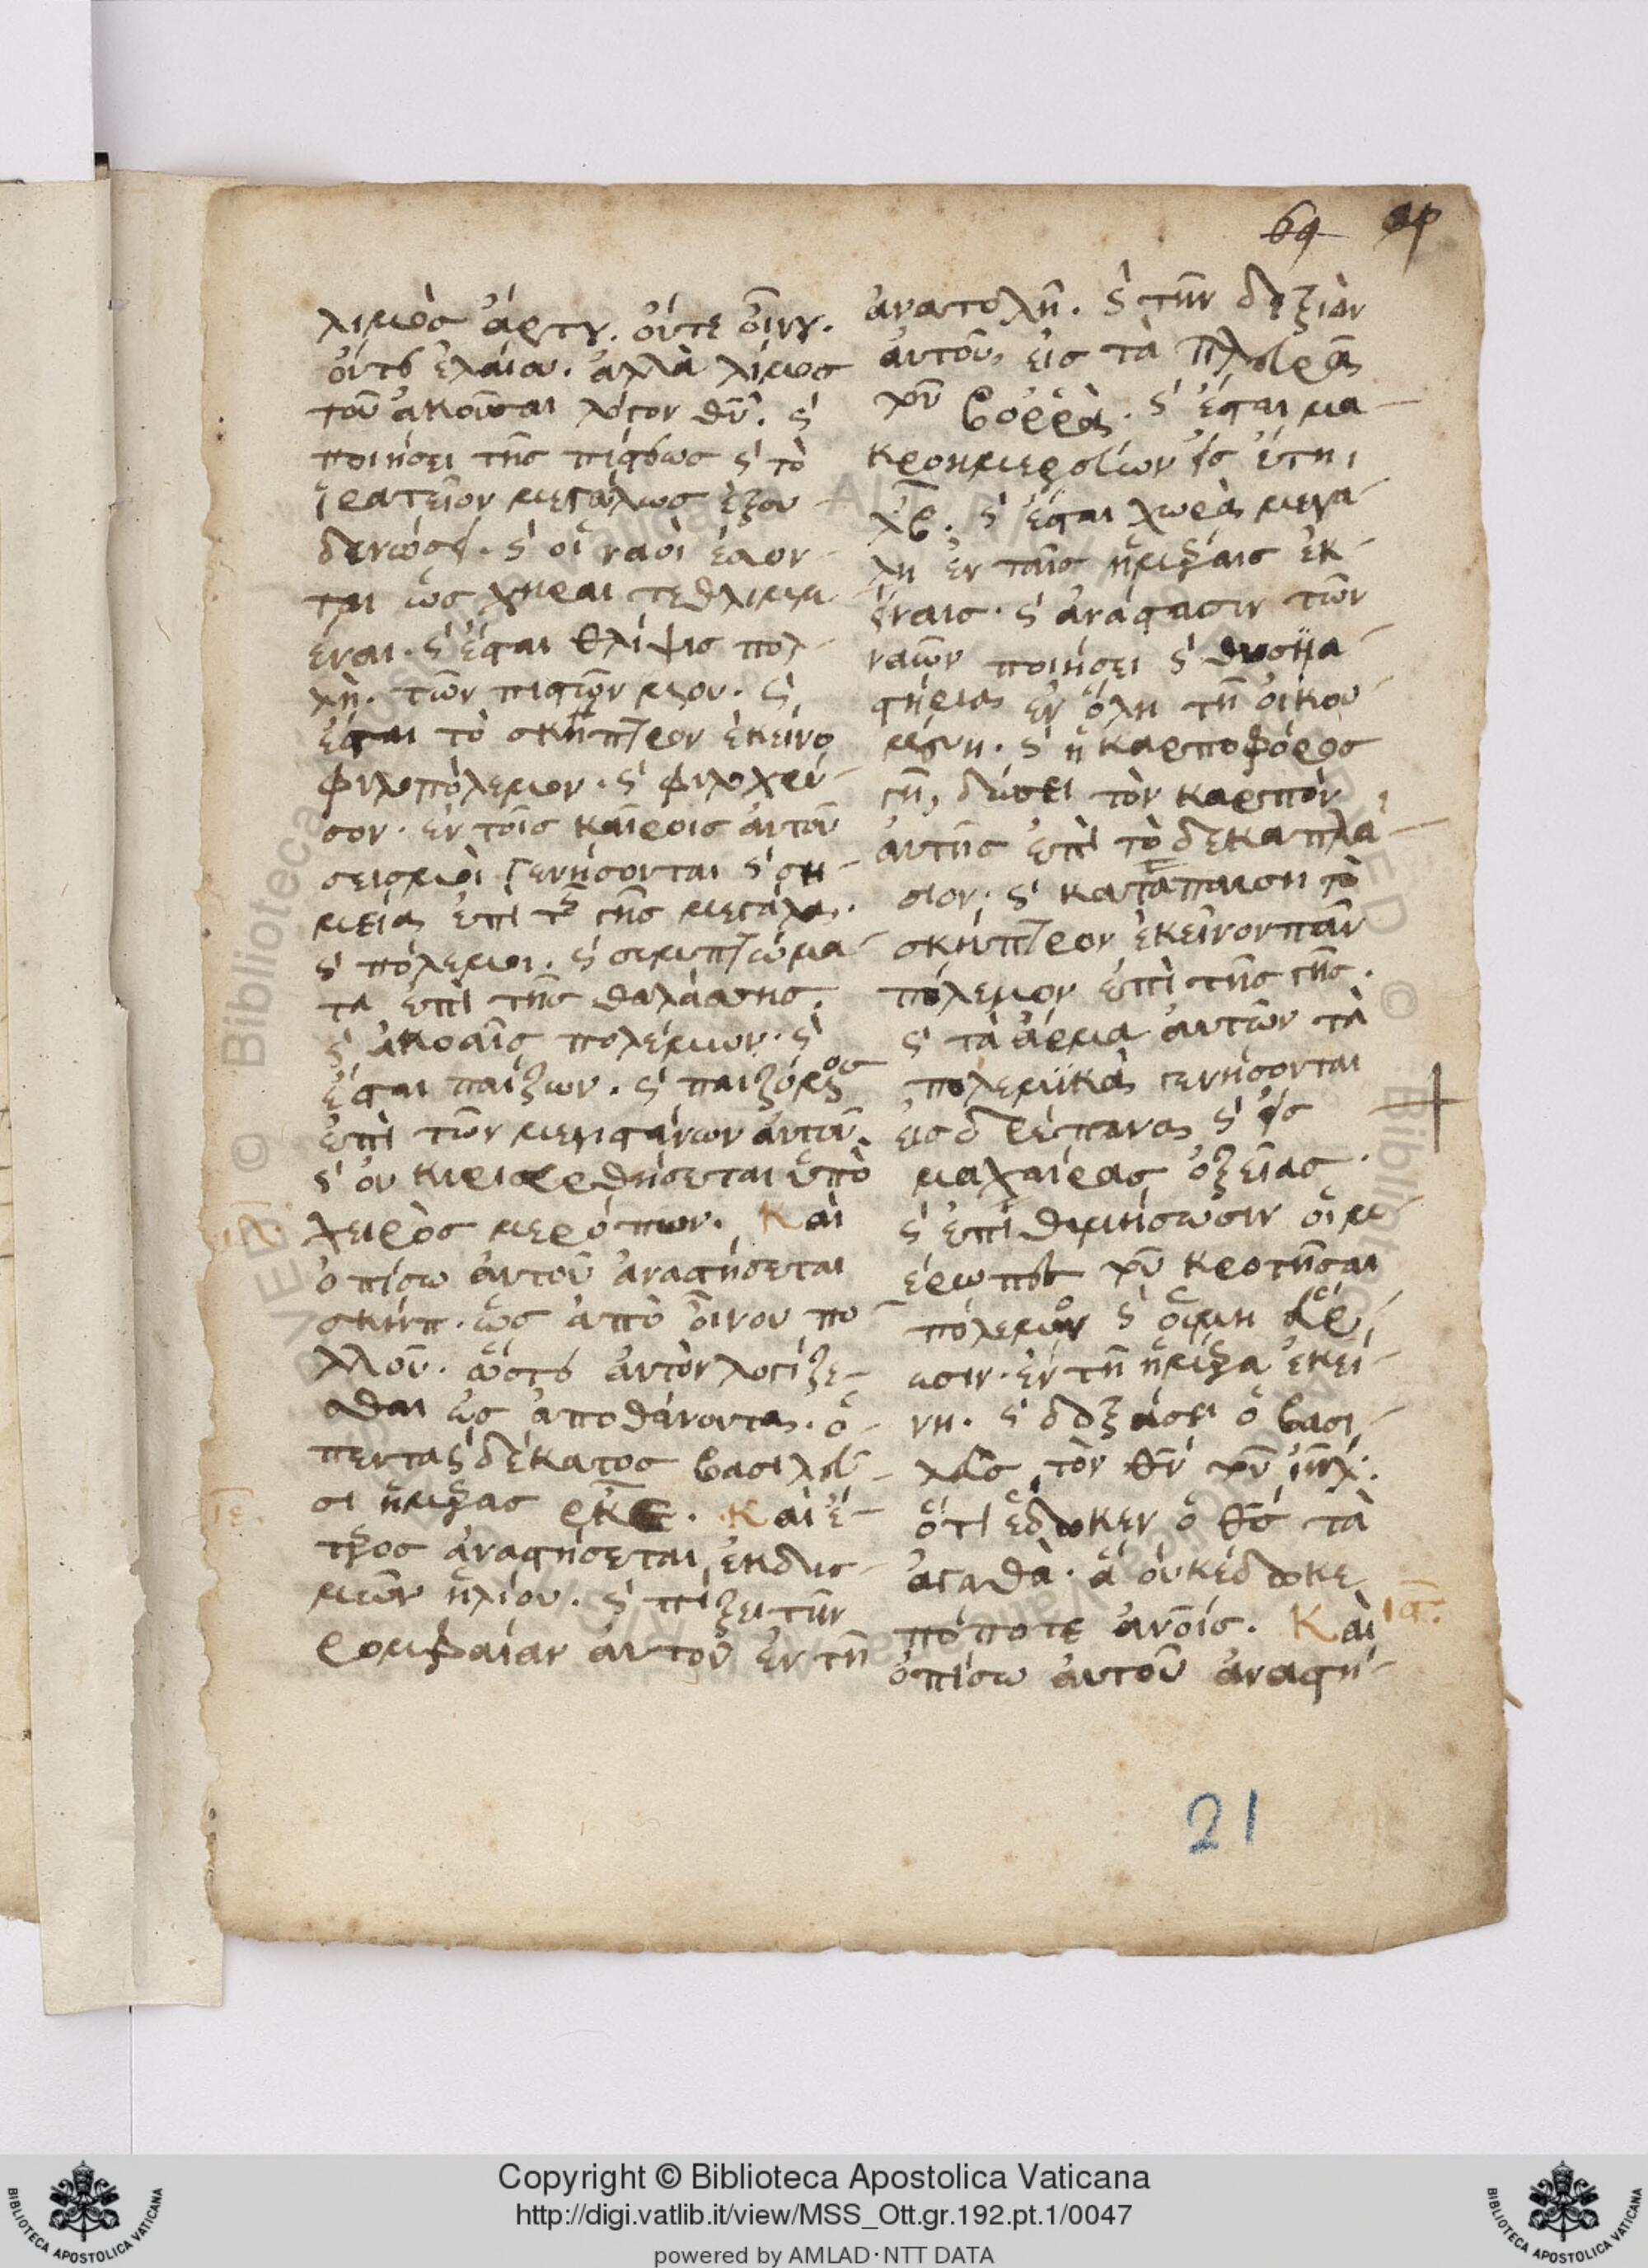 69
λιμὸς ἄρτου. οὔτε οἴνου.
οὔτε ἐλαίου. ἀλλὰ λίμος
τοῦ ἀκοῦσαι λόγον θῦ. ϛ
ποιήσει τῆς πίστεως ϛ τὸ
ἱερατεῖον μεγάλως ἐξου-
δενώσει. ϛ οἱ ναοὶ ἔσον-
ται ὡς χῆραι τεθλιμμ
έναι. ϛ ἔσται θλίψις πολ-
λὴ. τῶν πιστῶν μου. ϛ
ἔσται τὸ σκῆπτρον ἐκεῖνο
φιλοπόλεμον. ϛ φιλοχρύ-
σον. ἐν τοῖς καιροῖς αὐτοῦ
σεισμοὶ γενήσονται ϛ ση-
μεία ἐπὶ τ γῆς μεγάλα.
ϛ πόλεμοι. ϛ συμπτώμα-
τα ἐπὶ τῆς θαλάσσης.
ϛ ἀκοαῖς πολέμων. ϛ
ἔσται παίζων. ϛ παιζόμενος
ἐπὶ τῶν μεγιστάνων αὐτοῦ.
ϛ οὐ κυβερθήσεται ὑπὸ
ιδ. χειρὸς μερόπων. Καὶ
ὀπίσω αὐτοῦ ἀναστήσεται
σκήπ. ὡς ἀπὸ οἴνου πο-
λλοῦ. ὥστε αὐτὸν λογίζε-
σθαι ὡς ἀποθάνοντα. ὁ
πενταϛδέκατος βασιλεύ-
σι ἡμέρας ρκε. Καὶ ἕ-
ιε. τερος ἀναστήσεται, ἐκ δυσ-
μῶν ἡλίου. ϛ πίξει τὴν
ρομβαίαν αὐτοῦ ἐν τῇ
ἀνατολῇ. ϛ τὴν δεξιὰν
αὐτοῦ, εἰς τὰ πλευρὰ
τοῦ βορρᾶ. ϛ ἔσται μα-
κροημερεύων εἰς ἔτη,
λβ. ϛ ἔσται χωρὰ μεγά-
λη ἐν ταῖς ἡμέραις ἐκ-
είναις. ϛ ἀνάστασιν τῶν
ναῶν ποιήσει ϛ θυσϊα-
στήρια ἐν ὅλη τῇ οἰκου-
μένη. ϛ ἡ καρποφόρος
γῆ, δώσει τὸν καρπὸν
αὐτῆς ἐπὶ τὸ δεκαπλά-
σιον. ϛ καταπαύση τὸ
σκῆπτρον ἐκεῖνον πᾶν
πόλεμον ἐπὶ τῆς γῆς.
ϛ τὰ ἅρμα αὐτῶν τὰ
πολεμϊκὰ γενήσονται
εἰς δρέπανα ϛ εἰς
μαχαίρας ὀξείας.
ϛ ἐπιθυμήσωσιν οἱ μ-
έρωπες τοῦ κροτῆσαι
πόλεμον ϛ οὐ μὴ εὕρ-
ωσιν. ἐν τῇ ἡμέρα ἐκεί-
νη. ϛ δοξάσει ὁ βασι-
λεὺς τὸν θν τοῦ ιηλ.
ὅτι ἔδωκεν ὁ θς τὰ
ἀγαθὰ. ἃ οὐκ ἔδωκε
πόποτε ἀνοῖς. Καὶ ιϛ.
ὀπίσω αὐτοῦ ἀναστή-
21
Copyright © Biblioteca Apostolica Vaticana
http://digi.vatlib.it/view/MSS_Ott.gr.192.pt.1/0047
powered by AMLAD·NTT DATA
BIBLIOTECA APOSTOLICA VATICANA
BIBLIOTECA APOSTOLICA VATICANA